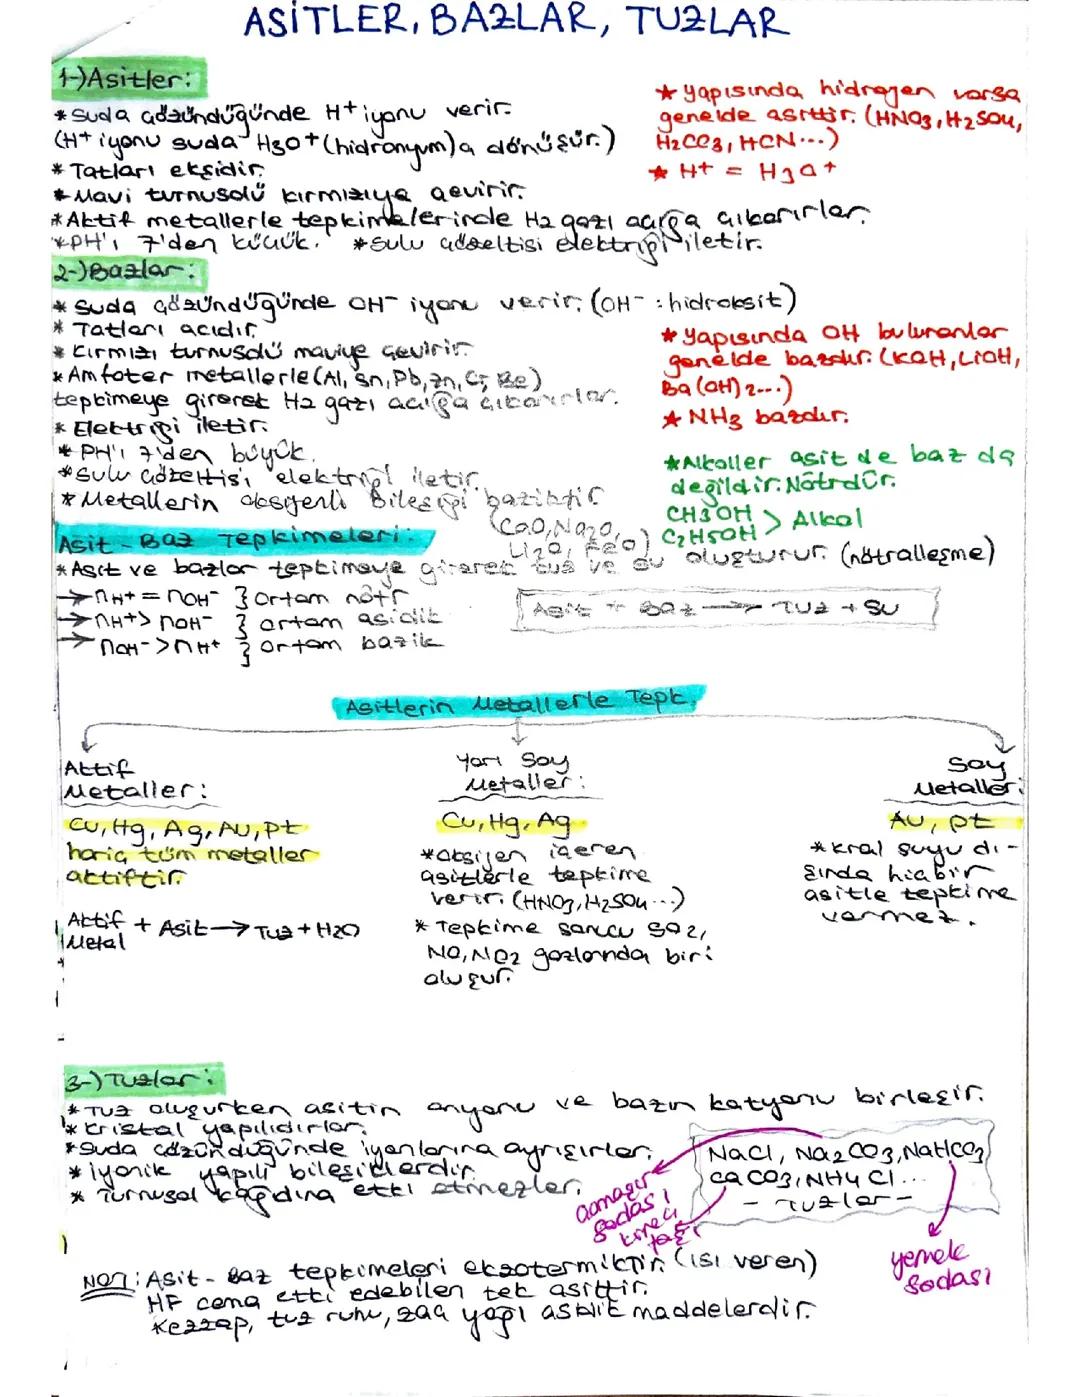 ASİTLER, BAZLAR, TUZLAR
1-)Asitler:
* Suda çözündüğünde H+ iyonu verir.
(H+ iyonu suda H3O+ (hidronyum)a dönüşür.)
* Tatları ekşidir.
* Mavi turnusolü kırmızıya çevirir.
* Aktif metallerle tepkimelerinde H2 gazı açığa çıkarırlar.
* PH'ı 7'den küçük. * Sulu çözeltisi elektriği iletir.
* Yapısında hidrojen varsa
genelde asittir. (HNO3, H2SO4,
H2CO3, HCN...)
* H+ = H3O+
2-)Bazlar:
* Suda çözündüğünde OH- iyonu verir. (OH- : hidroksit)
* Tatları acıdır.
* Kırmızı turnusolü maviye çevirir.
* Amfoter metallerle (Al, Sn, Pb, Zn, Cr, Be)
tepkimeye girerek H2 gazı açığa çıkarırlar.
* Elektriği iletir.
* PH'ı 7'den büyük.
* Sulu çözeltisi elektriği iletir.
* Metallerin oksijenli bileşiği baziktir
(CaO, Na2O,
Li2O, FeO)
* Yapısında OH bulunanlar
genelde bazdır. (KOH, LiOH,
Ba(OH)2...)
* NH3 bazdır.
* Alkoller asit de baz da
değildir. Nötrdür.
CH3OH
C2H5OH > Alkol
Asit - Baz Tepkimeleri:
* Asit ve bazlar tepkimeye girerek tuz ve su oluşturur. (nötralleşme)
→ nH+ = nOH- } Ortam nötr
→ nH+ > nOH- } ortam asidik
→ nOH- > nH+ } ortam bazik
Asit + Baz → Tuz + Su
Asitlerin Metallerle Tepk.
Aktif
Metaller:
Cu, Hg, Ag, Au, Pt
hariç tüm metaller
aktiftir.
Aktif
Metal + Asit → Tuz + H2O
Yarı Soy
Metaller:
Cu, Hg, Ag
* Oksijen içeren
asitlerle tepkime
verir. (HNO3, H2SO4...)
* Tepkime sonucu SO2,
NO, NO2 gazlarında biri
oluşur.
Soy
Metaller:
Au, pt
* Kral suyu dı-
şında hiçbir
asitle tepkime
vermez.
3-)Tuzlar:
* Tuz oluşurken asitin anyonu ve bazın katyonu birleşir.
* Kristal yapılıdırlar.
* Suda çözündüğünde iyonlarına ayrışırlar.
* İyonik yapılı bileşiklerdir.
* Turnusol kağıdına etki etmezler.
NaCl, Na2CO3, NaHCO3
CaCO3, NH4Cl...
- Tuzlar -
çamaşır
sodası
kireç
taşı
yemek
sodası
NOT: Asit - Baz tepkimeleri ekzotermiktir. (ısı veren)
HF cama etki edebilen tek asittir.
Kezzap, tuz ruhu, zaç yağı asidik maddelerdir.